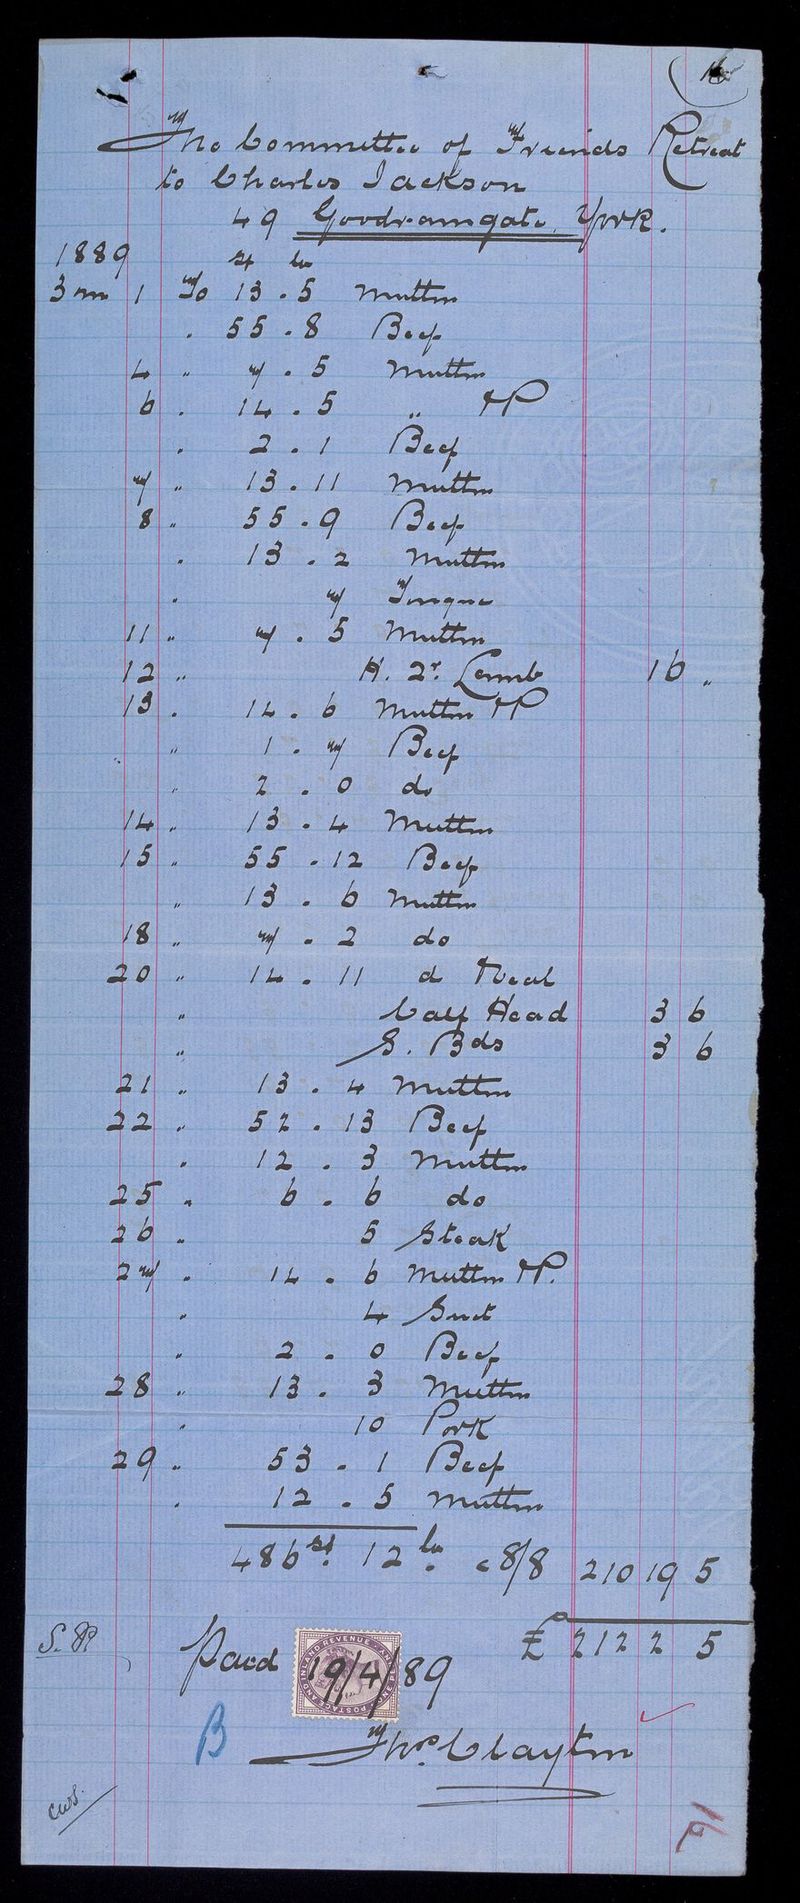 The Committee of Friends Retreat
to Charles Jackson
49 Goodramgate, York.
1889 st lb
3 m 1 To 13 . 5 Mutton
" 55 . 8 Beef
4 " 7 . 5 Mutton
6 " 14 . 5 " &P
" 2 . 1 Beef
7 " 13 . 11 Mutton
8 " 55 . 9 Beef
" 13 . 2 Mutton
" 7 Tongue
11 " 7 . 5 Mutton
12 " H. 2r. Lamb 16 "
13 " 14 . 6 Mutton &P
" 1 . 7 Beef
" 2 . 0 do
14 " 13 . 4 Mutton
15 " 55 . 12 Beef
" 13 . 6 Mutton
18 " 7 . 2 do
20 " 14 . 11 d & Veal
" Calf Head 3 6
" S. Bds 3 6
21 " 13 . 4 Mutton
22 " 52 . 13 Beef
" 12 . 3 Mutton
25 " 6 . 6 do
26 " 5 Steak
27 " 14 . 6 Mutton &P.
" 4 Suet
" 2 . 0 Beef
28 " 13 . 3 Mutton
" 10 Pork
29 " 53 . 1 Beef
" 12 . 5 Mutton
486 st. 12 lb. @ 8/8 210 19 5
£ 212 2 5
Paid 19/4/89
POSTAGE AND INLAND REVENUE ONE PENNY
B
Thos. Clayton